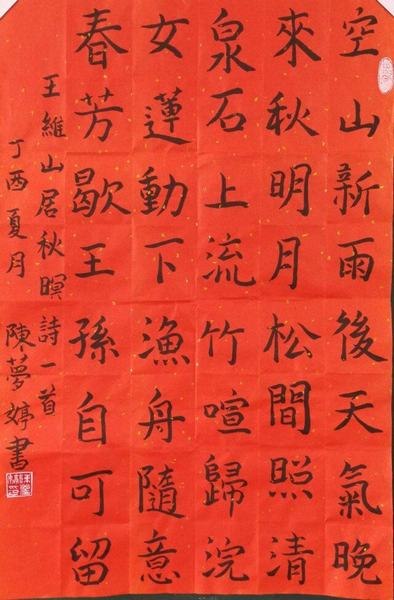 空山新雨後天氣晚
來秋明月松間照清
泉石上流竹喧歸浣
女蓮動下漁舟隨意
春芳歇王孫自可留
王維山居秋暝詩一首
丁酉夏月 陳夢婷書